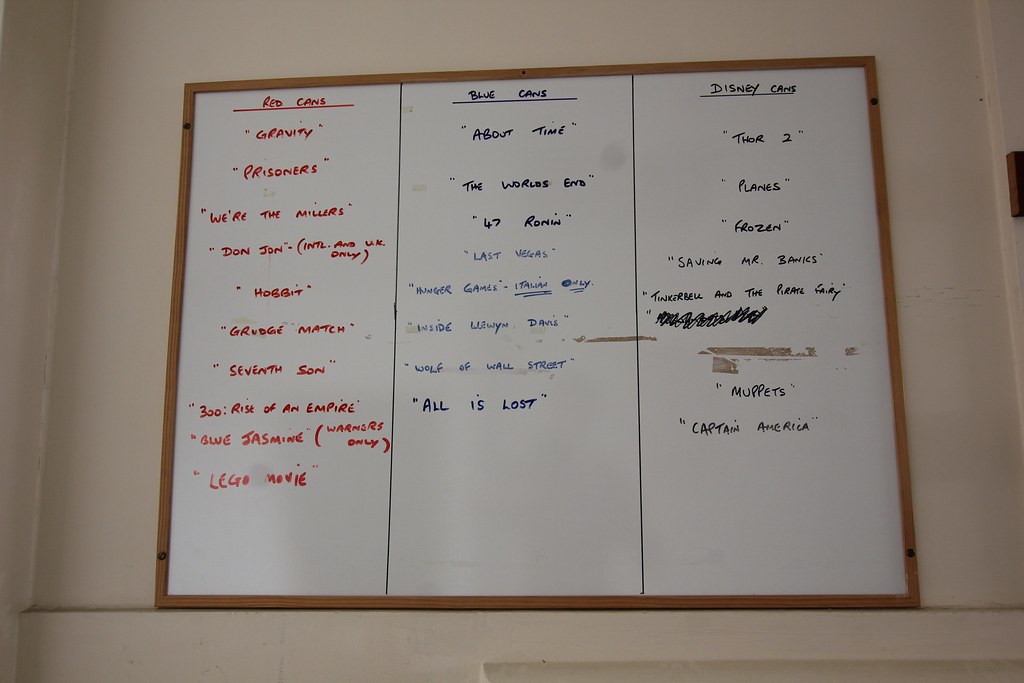 RED CANS
"GRAVITY"
"PRISONERS"
"WE'RE THE MILLERS"
"DON JON" - (INTL. AND U.K. ONLY)
"HOBBIT"
"GRUDGE MATCH"
"SEVENTH SON"
"300: RISE OF AN EMPIRE"
"BLUE JASMINE" (WARNERS ONLY)
"LEGO MOVIE"
BLUE CANS
"ABOUT TIME"
"THE WORLDS END"
"47 RONIN"
"LAST VEGAS"
"HUNGER GAMES" - ITALIAN ONLY.
"INSIDE LLEWYN DAVIS"
"WOLF OF WALL STREET"
"ALL IS LOST"
DISNEY CANS
"THOR 2"
"PLANES"
"FROZEN"
"SAVING MR. BANKS"
"TINKERBELL AND THE PIRATE FAIRY"
"MUPPETS"
"CAPTAIN AMERICA"